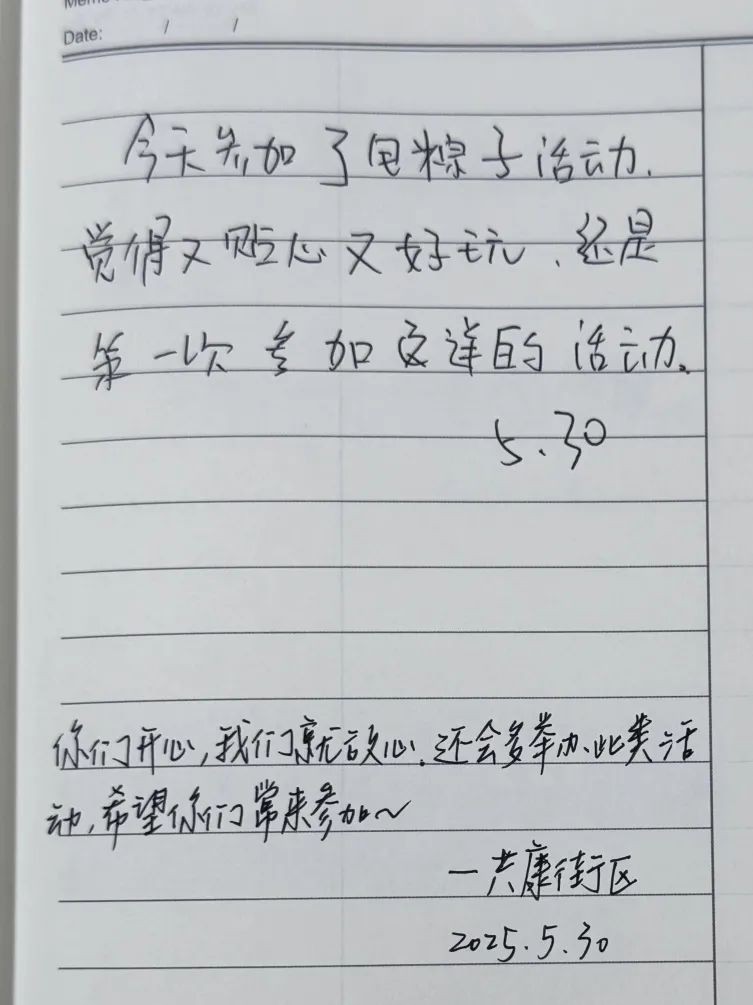 Date: / /
今天参加了包粽子活动.
觉得又贴心又好玩.还是
第一次参加这样的活动.
5.30
你们开心,我们就放心.还会多举办此类活
动,希望你们常来参加~
—共康街区
2025.5.30